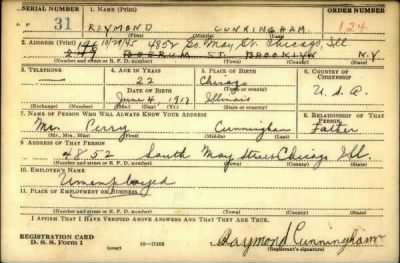 SERIAL NUMBER 1. NAME (Print) ORDER NUMBER
31 RAYMOND CUNNINGHAM 124
(First) (Middle) (Last)
2. ADDRESS (Print) 10/28/45 4852 So. May St. Chicago, Ill
BOERUM ST. BROOKLYN N.Y.
(Number and street or R. F. D. number) (Town) (County) (State)
3. TELEPHONE 4. AGE IN YEARS 5. PLACE OF BIRTH 6. COUNTRY OF CITIZENSHIP
22 Chicago
DATE OF BIRTH (Town or county)
June 4, 1917 Illinois U.S.A.
(Exchange) (Number) (Mo.) (Day) (Yr.) (State or country)
7. NAME OF PERSON WHO WILL ALWAYS KNOW YOUR ADDRESS 8. RELATIONSHIP OF THAT PERSON
Mr. Perry Cunningham Father
(Mr., Mrs., Miss) (First) (Middle) (Last)
9. ADDRESS OF THAT PERSON
4852 South May Street Chicago Ill.
(Number and street or R. F. D. number) (Town) (County) (State)
10. EMPLOYER'S NAME
Unemployed
11. PLACE OF EMPLOYMENT OR BUSINESS
(Number and street or R. F. D. number) (Town) (County) (State)
I AFFIRM THAT I HAVE VERIFIED ABOVE ANSWERS AND THAT THEY ARE TRUE.
REGISTRATION CARD
D. S. S. Form 1 Raymond Cunningham
(Registrant's signature)